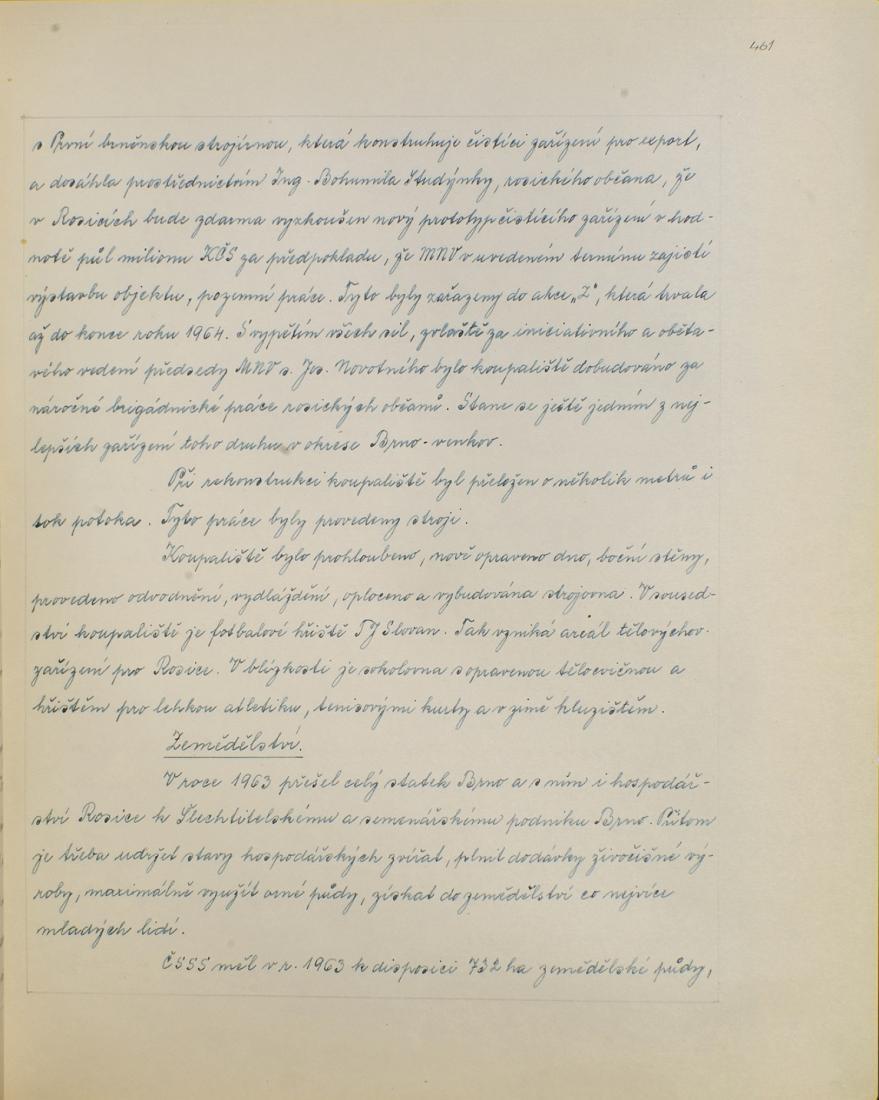 461
s První brněnskou strojírnou, která konstruhuje čistící zařízení pro export,
a dosáhla prostřednictvím Ing. Bohumila Študýnky, rosického občana, že
v Rosicích bude zdarma vyzkoušen nový prototyp čistícího zařízení v hod-
notě půl milionu KČS za předpokladu, že MNV v uvedeném termínu zajistí
výstavbu objektu, pozemní práce. Tyto byly zařazeny do akce „Z", která trvala
až do konce roku 1964. S vypětím všech sil, zvláště za iniciativního a oběta-
vého vedení předsedy MNV s. Jos. Novotného bylo koupaliště dobudováno za
náročné brigádnické práce rosických občanů. Stane se ještě jedním z nej-
lepších zařízení toho druhu v okrese Brno-venkov.
Při rekonstrukci koupaliště byl přeložen o několik metrů i
tok potoka. Tyto práce byly provedeny stroji.
Koupaliště bylo prohloubeno, nově opraveno dno, boční stěny,
provedeno odvodnění, vydláždění, oploceno a vybudována strojovna. V soused-
ství koupaliště je fotbalové hřiště TJ Slovan. Tak vzniká areál tělovýchov.
zařízení pro Rosice. V blízkosti je sokolovna s opravenou tělocvičnou a
hřištěm pro lehkou atletiku, tenisovými kurty a v zimě kluzištěm.
Zemědělství.
V roce 1963 přešel celý statek Brno a s ním i hospodář-
ství Rosice k Šlechtitelskému a semenářskému podniku Brno. Přitom
je třeba udržet stavy hospodářských zvířat, plnit dodávky živočišné vý-
roby, maximálně využít orné půdy, získat do zemědělství co nejvíce
mladých lidí.
ČSSS měl v r. 1963 k disposici 732 ha zemědělské půdy,